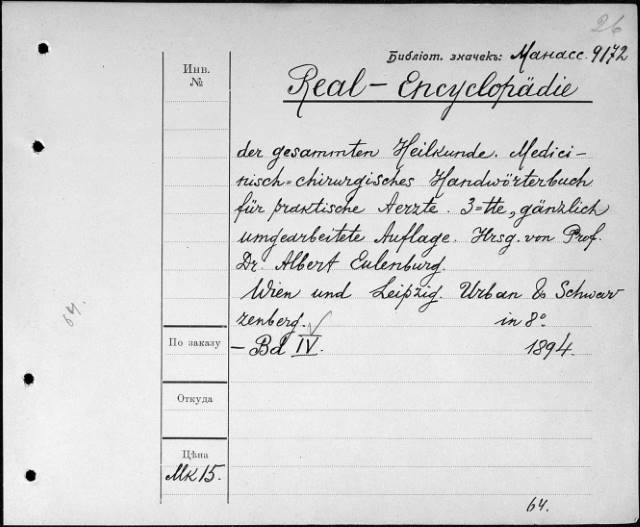 26
Библіот. значекъ: Манасс. 9172
Инв.
№
Real-Encyclopädie
der gesammten Heilkunde. Medici-
nisch=chirurgisches Handwörterbuch
für praktische Aerzte. 3=tte, gänzlich
umgearbeitete Auflage. Hrsg. von Prof.
Dr. Albert Eulenburg.
Wien und Leipzig. Urban & Schwar
zenberg. in 8º.
64.
По заказу
- Bd IV. 1894.
Откуда
Цѣна
Мк 15.
64.